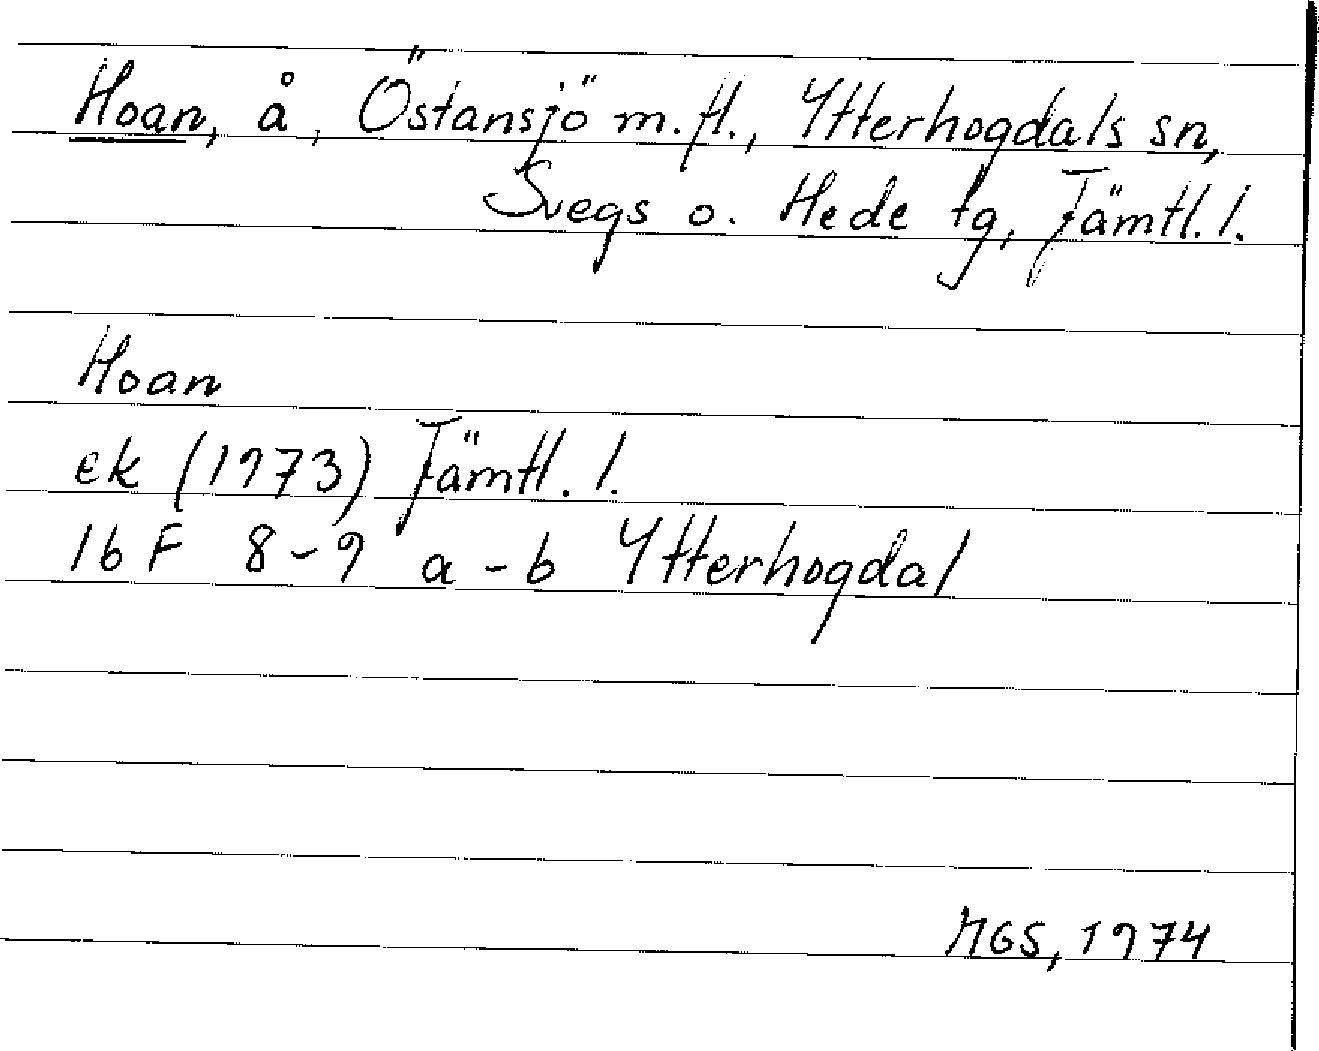 Hoan, å, Östansjö m.fl., Ytterhogdals sn,
Svegs o. Hede tg, Jämtl. l.
Hoan
ek (1973) Jämtl. l.
16 F 8-9 a-b Ytterhogdal
MGS, 1974